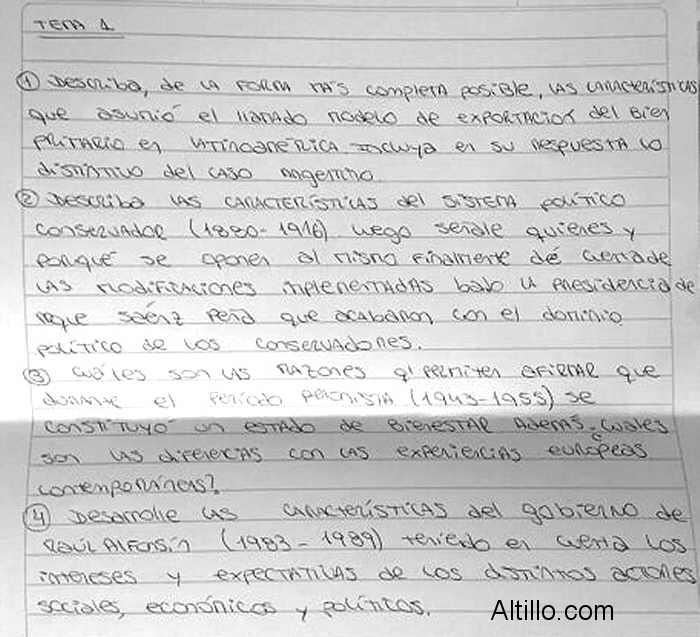 TEMA 1
① Describa, de la forma más completa posible, las características
que asumió el llamado modelo de exportación del bien
primario en Latinoamérica. Incluya en su respuesta lo
distintivo del caso argentino.
② Describa las características del sistema político
conservador (1880-1916) luego señale quienes y
porqué se oponen al mismo finalmente dé cuenta de
las modificaciones implementadas bajo la presidencia de
roque saénz Peña que acabaron con el dominio
político de los conservadores.
③ cuáles son las razones q' permiten afirmar que
durante el período peronista (1943-1955) se
constituyó un estado de bienestar además. cuales
son las diferencias con las experiencias europeas
contemporáneas?
④ Desarrolle las características del gobierno de
Raúl Alfonsín (1983-1989) teniendo en cuenta los
intereses y expectativas de los distintos actores
sociales, económicos y políticos.
Altillo.com